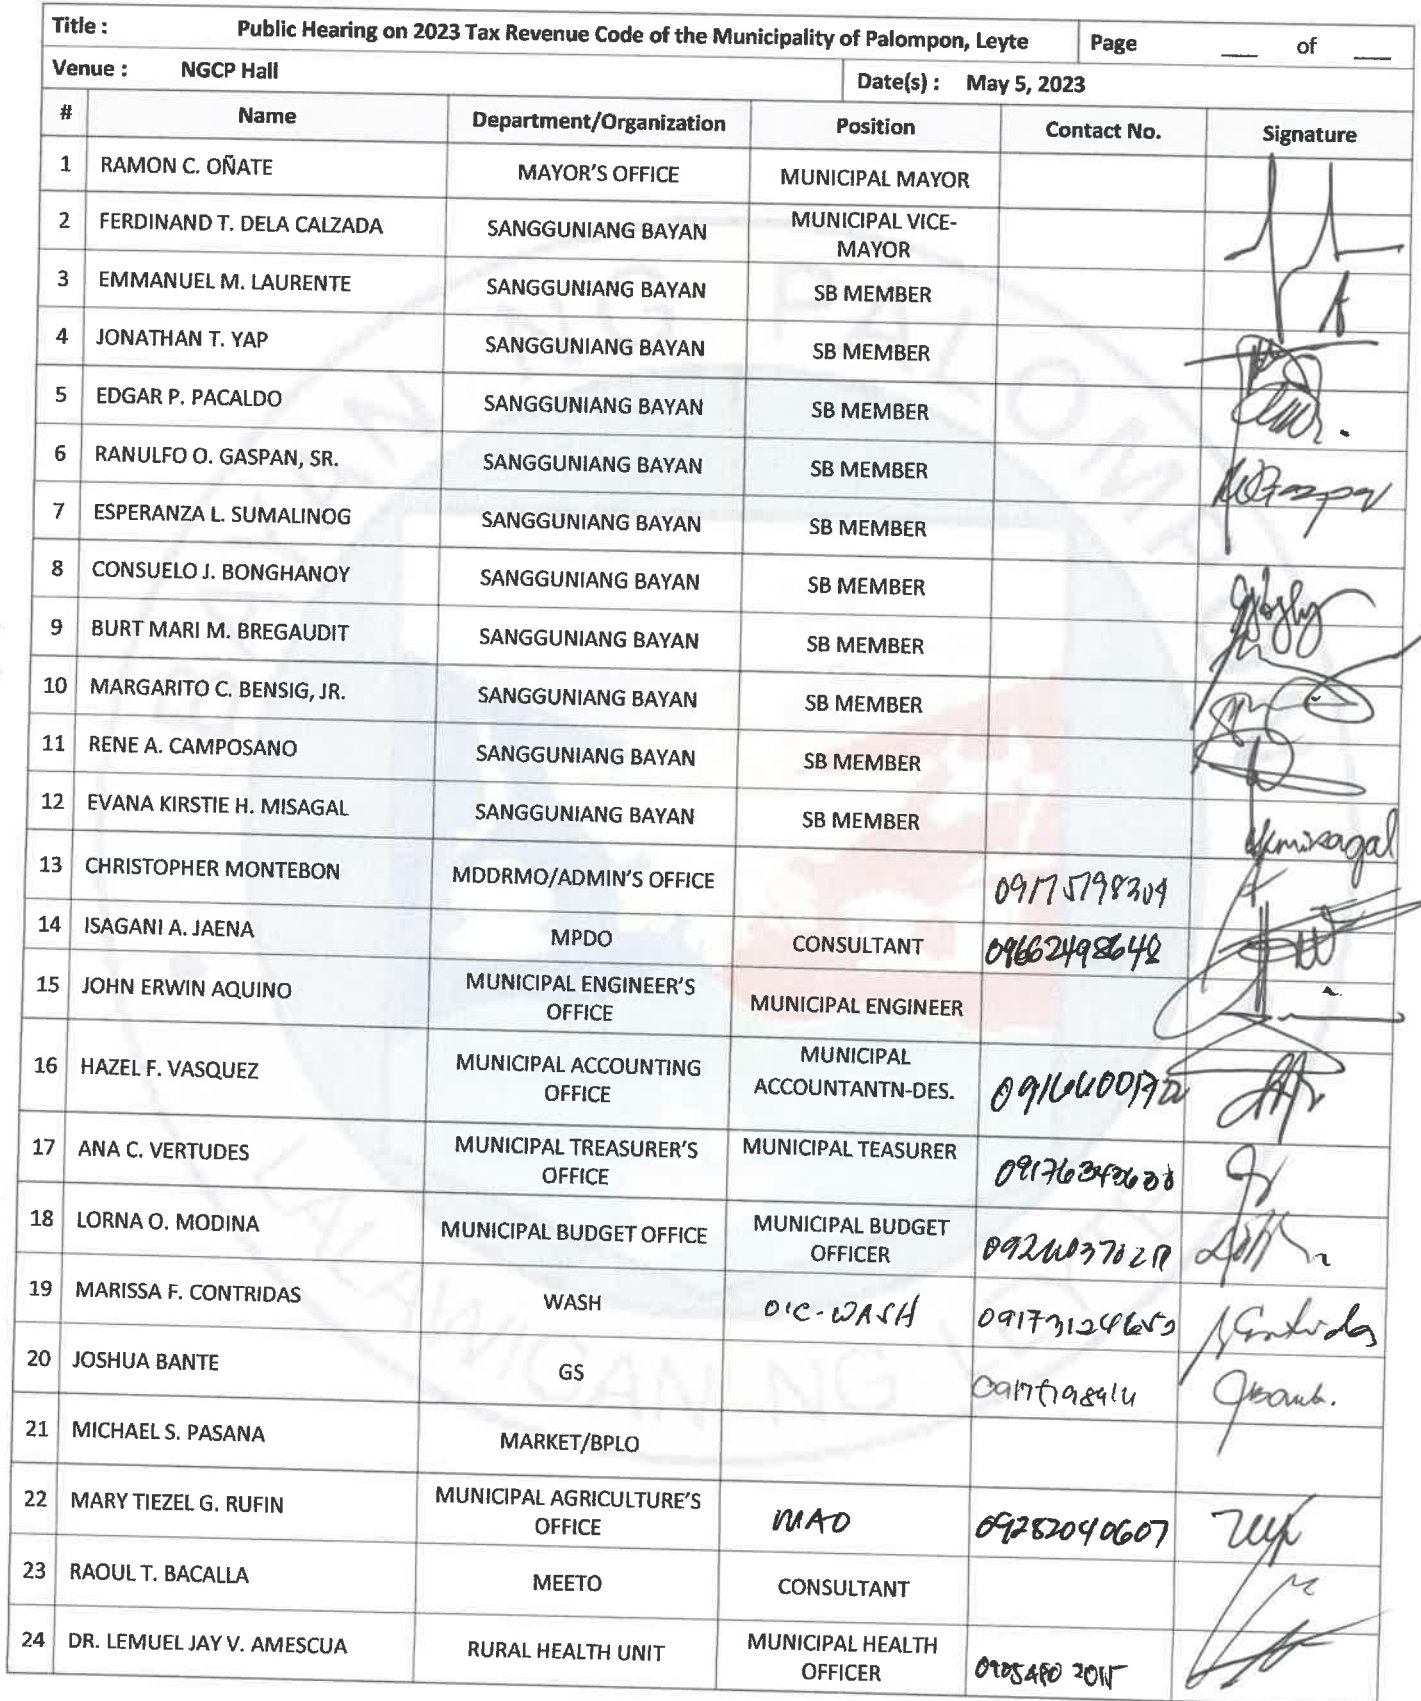 Title : Public Hearing on 2023 Tax Revenue Code of the Municipality of Palompon, Leyte Page ___ of ___
Venue : NGCP Hall Date(s) : May 5, 2023
# Name Department/Organization Position Contact No. Signature
1 RAMON C. OÑATE MAYOR'S OFFICE MUNICIPAL MAYOR
2 FERDINAND T. DELA CALZADA SANGGUNIANG BAYAN MUNICIPAL VICE-
MAYOR
3 EMMANUEL M. LAURENTE SANGGUNIANG BAYAN SB MEMBER
4 JONATHAN T. YAP SANGGUNIANG BAYAN SB MEMBER
5 EDGAR P. PACALDO SANGGUNIANG BAYAN SB MEMBER
6 RANULFO O. GASPAN, SR. SANGGUNIANG BAYAN SB MEMBER
7 ESPERANZA L. SUMALINOG SANGGUNIANG BAYAN SB MEMBER
8 CONSUELO J. BONGHANOY SANGGUNIANG BAYAN SB MEMBER
9 BURT MARI M. BREGAUDIT SANGGUNIANG BAYAN SB MEMBER
10 MARGARITO C. BENSIG, JR. SANGGUNIANG BAYAN SB MEMBER
11 RENE A. CAMPOSANO SANGGUNIANG BAYAN SB MEMBER
12 EVANA KIRSTIE H. MISAGAL SANGGUNIANG BAYAN SB MEMBER
13 CHRISTOPHER MONTEBON MDDRMO/ADMIN'S OFFICE
14 ISAGANI A. JAENA MPDO CONSULTANT 09662498648
15 JOHN ERWIN AQUINO MUNICIPAL ENGINEER'S
OFFICE MUNICIPAL ENGINEER
16 HAZEL F. VASQUEZ MUNICIPAL ACCOUNTING
OFFICE MUNICIPAL
ACCOUNTANTN-DES.
17 ANA C. VERTUDES MUNICIPAL TREASURER'S
OFFICE MUNICIPAL TEASURER
18 LORNA O. MODINA MUNICIPAL BUDGET OFFICE MUNICIPAL BUDGET
OFFICER
19 MARISSA F. CONTRIDAS WASH OIC-WASH
20 JOSHUA BANTE GS
21 MICHAEL S. PASANA MARKET/BPLO
22 MARY TIEZEL G. RUFIN MUNICIPAL AGRICULTURE'S
OFFICE MAO 09282040607
23 RAOUL T. BACALLA MEETO CONSULTANT
24 DR. LEMUEL JAY V. AMESCUA RURAL HEALTH UNIT MUNICIPAL HEALTH
OFFICER
BAYAN NG PALOMPON
LALAWIGAN NG LEYTE